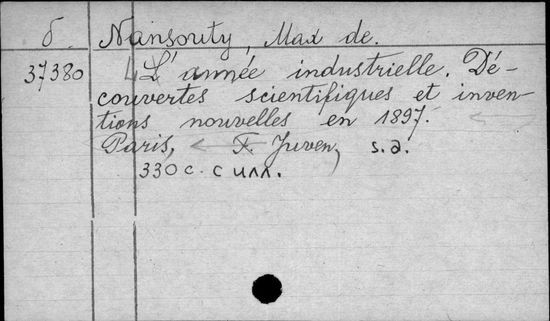 б. Nansouty, Max de.
37380 L'année industrielle. Dé-
couvertes scientifiques et inven-
tions nouvelles en 1897.
Paris, F. Juven, s.a.
330 с. с илл.